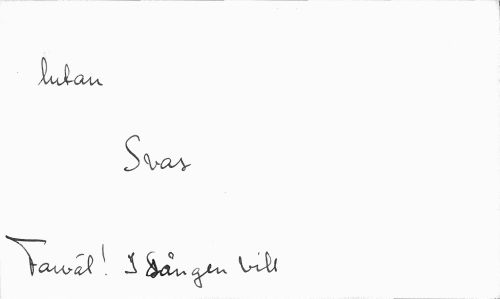 lutan
Svas
Farväl! I sången vill